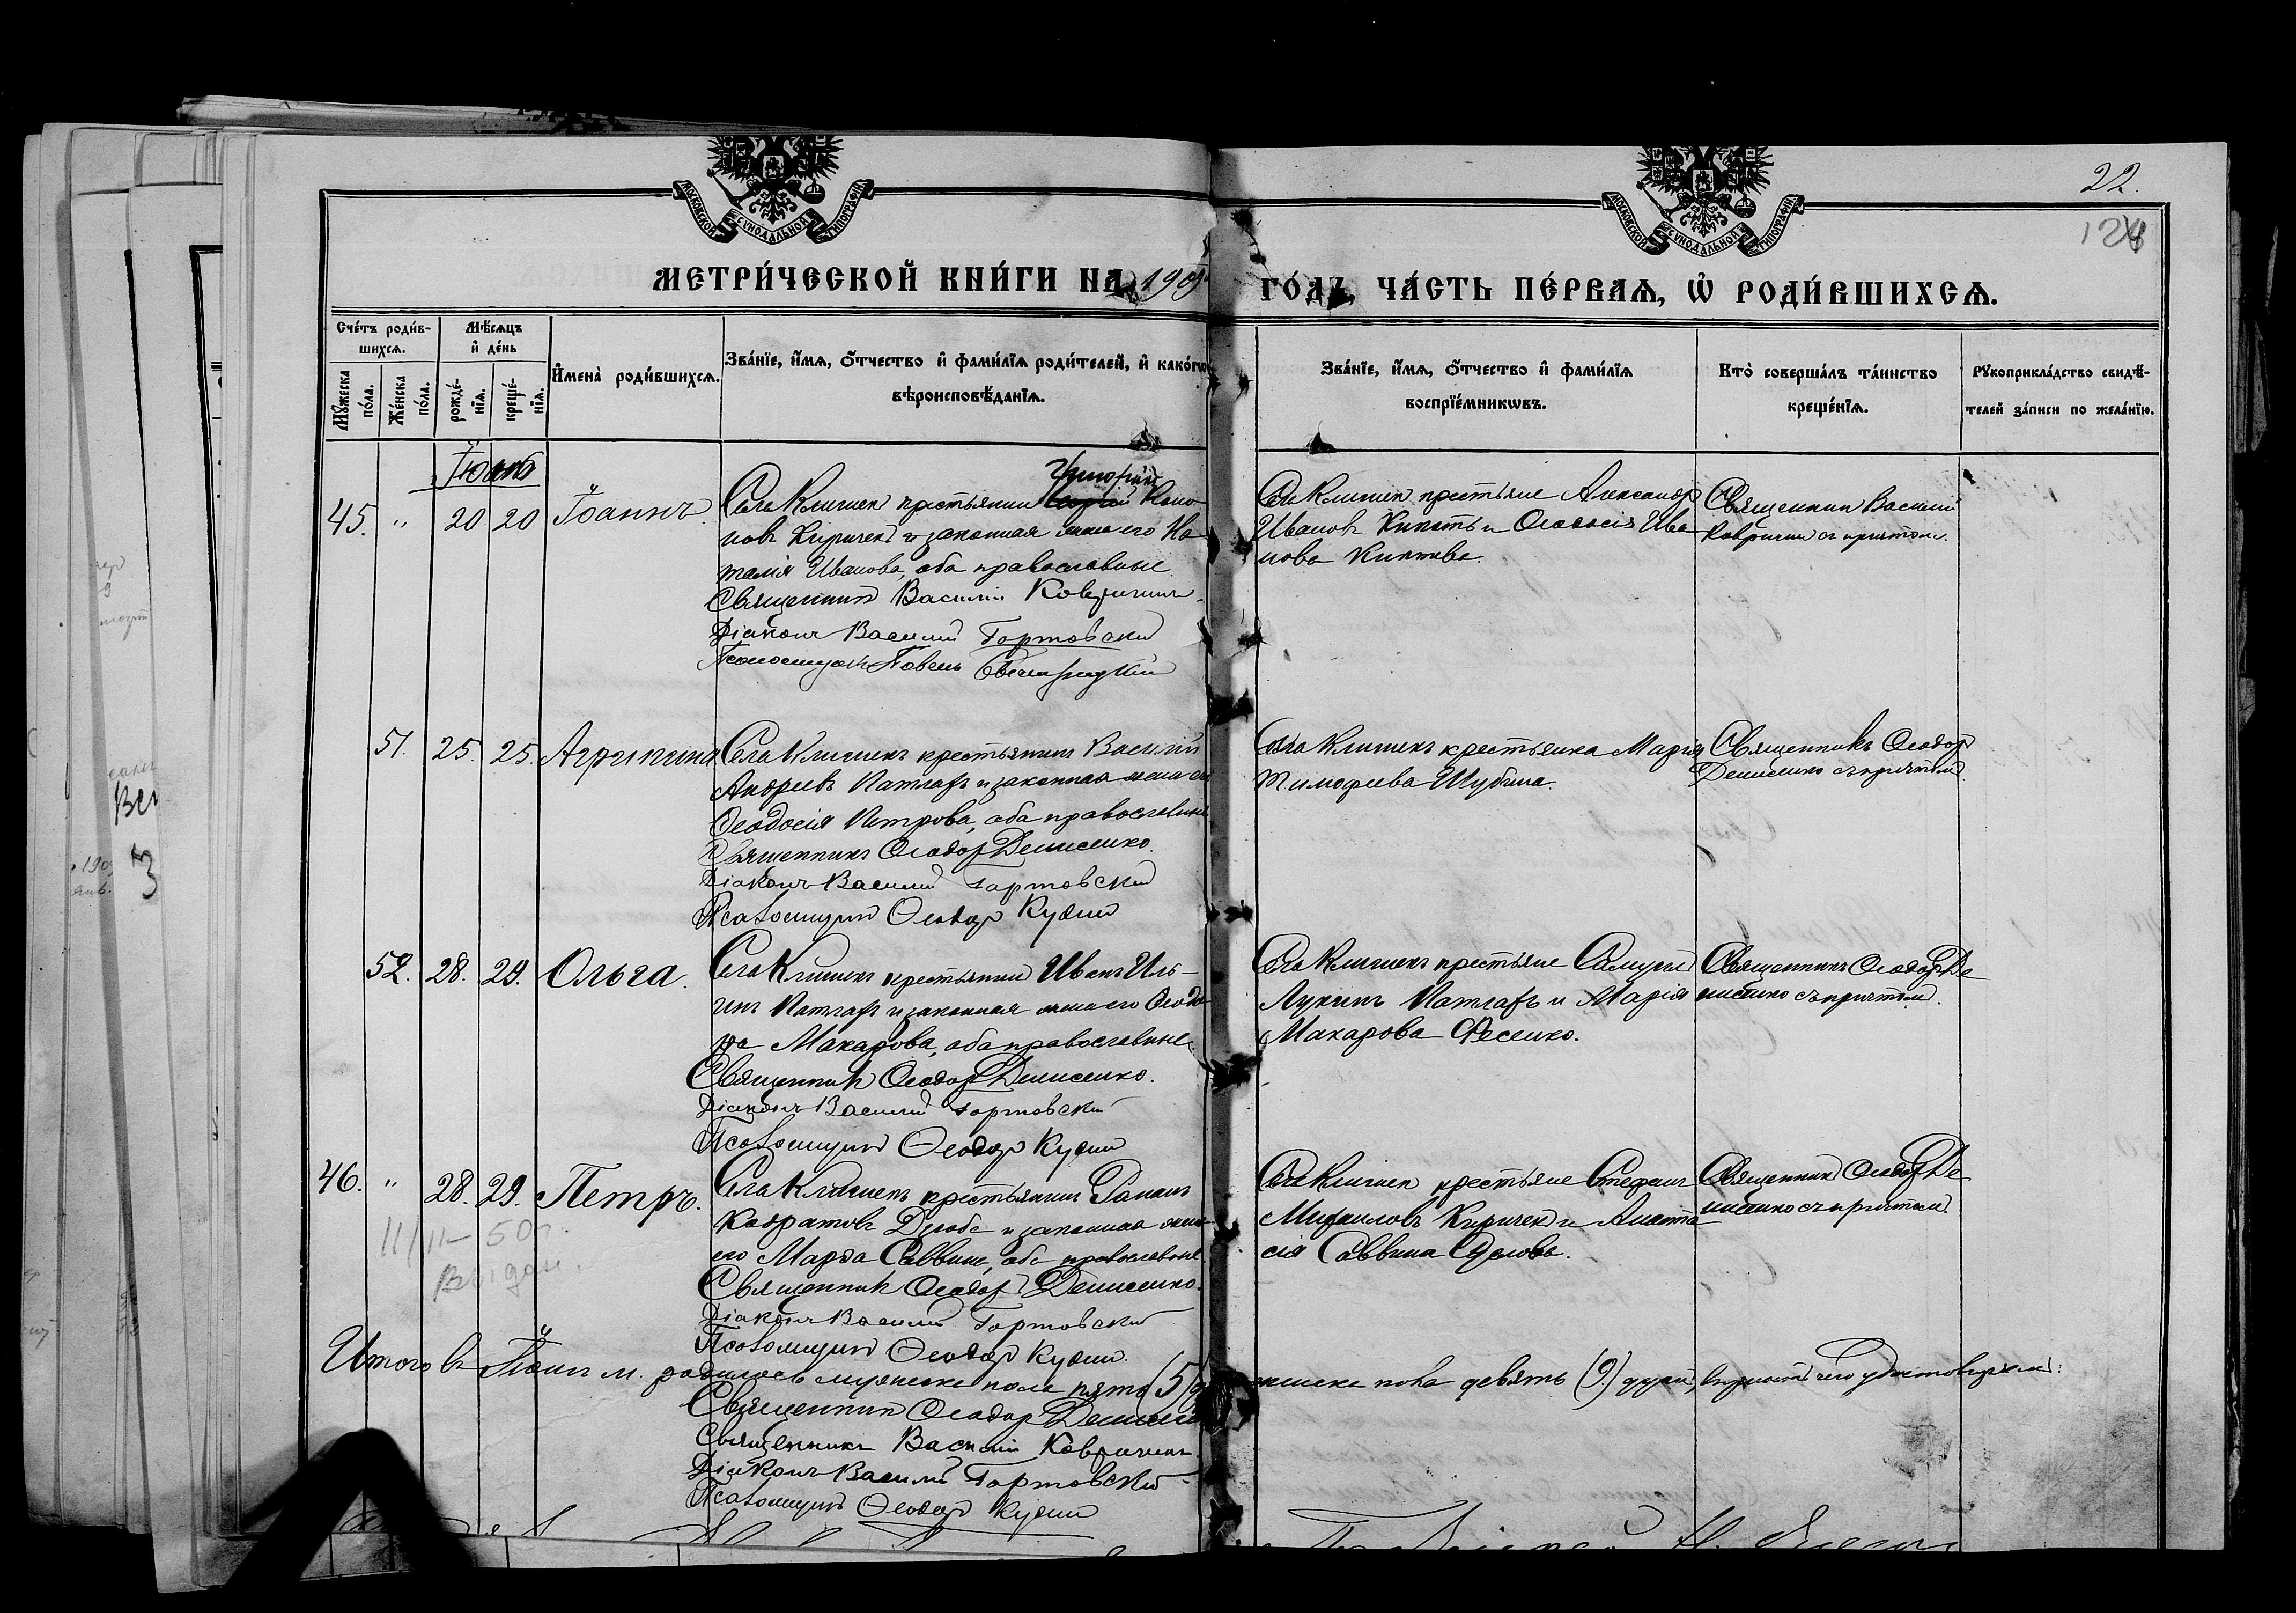 22.
124
МОСКОВСКОЙ СѴНОДАЛЬНОЙ ТИПОГРАФІИ
МОСКОВСКОЙ СѴНОДАЛЬНОЙ ТИПОГРАФІИ
МЕТРИ́ЧЕСКОЙ КНИ́ГИ НА 1909 ГО́ДЪ, ЧА́СТЬ ПЕ́РВАѦ, Ѡ РОДИ́ВШИХСѦ.
Сче́тъ роди́в-
шихсѧ.
Мꙋ́жеска по́ла.
Же́нска по́ла.
Мѣ́сѧцъ
и҆ де́нь
рожде́-
нїѧ.
креще́-
нїѧ.
И҆мена̀ роди́вшихсѧ.
Зва́нїе, и҆́мѧ, ѻ҆́тчество и҆ фами́лїѧ роди́телей, и҆ како́гѡ
вѣроисповѣ́данїѧ.
Зва́нїе, и҆́мѧ, ѻ҆́тчество и҆ фами́лїѧ
воспрїе́мникѡвъ.
Кто̀ соверша́лъ та́инство
креще́нїѧ.
Рꙋкоприкла́дство свидѣ́-
телей за́писи по жела́нїю.
45. " 20 20 Іоаннъ.
Села Клишекъ крестьянинъ Коно-
новъ Киричекъ и законная жена его На-
талія Иванова, оба православные.
Священникъ Василій Ковричинъ
Діаконъ Василий Гортовский
Псаломщикъ Павелъ
Села Клишекъ крестьяне Александръ
Ивановъ и Ѳеодосія Ива-
нова
Священникъ Василий
Ковричинъ съ причтомъ.
51. 25. 25. Агрипина
Села Клишекъ крестьянинъ Василий
Андреевъ Патлахъ и законная жена его
Ѳеодосія Петрова, оба православные
Священникъ Ѳеодоръ Денисенко.
Діаконъ Василий Гортовский
Псаломщикъ Ѳеодоръ Кудин
Села Клишекъ крестьянка Марія
Тимофеева Шубина.
Священникъ Ѳеодоръ
Денисенко съ причтомъ.
52. 28. 29. Ольга.
Села Клишекъ крестьянинъ Иванъ Иль-
инъ Патлахъ и законная жена его Ѳеодо-
ра Макарова, оба православные.
Священникъ Ѳеодоръ Денисенко.
Діаконъ Василий Гортовский
Псаломщикъ Ѳеодоръ Кудин
Села Клишекъ крестьяне Самуилъ
Лукинъ Патлахъ и Марія
Макарова Фесенко.
Священникъ Ѳеодоръ Де-
нисенко съ причтомъ.
46. " 28. 29. Петръ.
Села Клишекъ крестьянинъ Романъ
Кодратовъ Дзюба и законная жена
его Марѳа Саввина, оба православные
Священникъ Ѳеодоръ Денисенко.
Діаконъ Василий Гортовский
Псаломщикъ Ѳеодоръ Кудин.
Села Клишекъ крестьяне Стефанъ
Михаиловъ Киричекъ и Анаста-
сія Саввина
Священникъ Ѳеодоръ Де-
нисенко съ причтомъ.
11/II–50г.
Выдан.
Итого въ м. родилось мужеска пола пять (5) женска пола девять (9) душъ,
Священникъ Ѳеодоръ Денисенко
Священникъ Василій Ковричинъ
Діаконъ Василий Гортовский
Псаломщикъ Ѳеодоръ Кудин